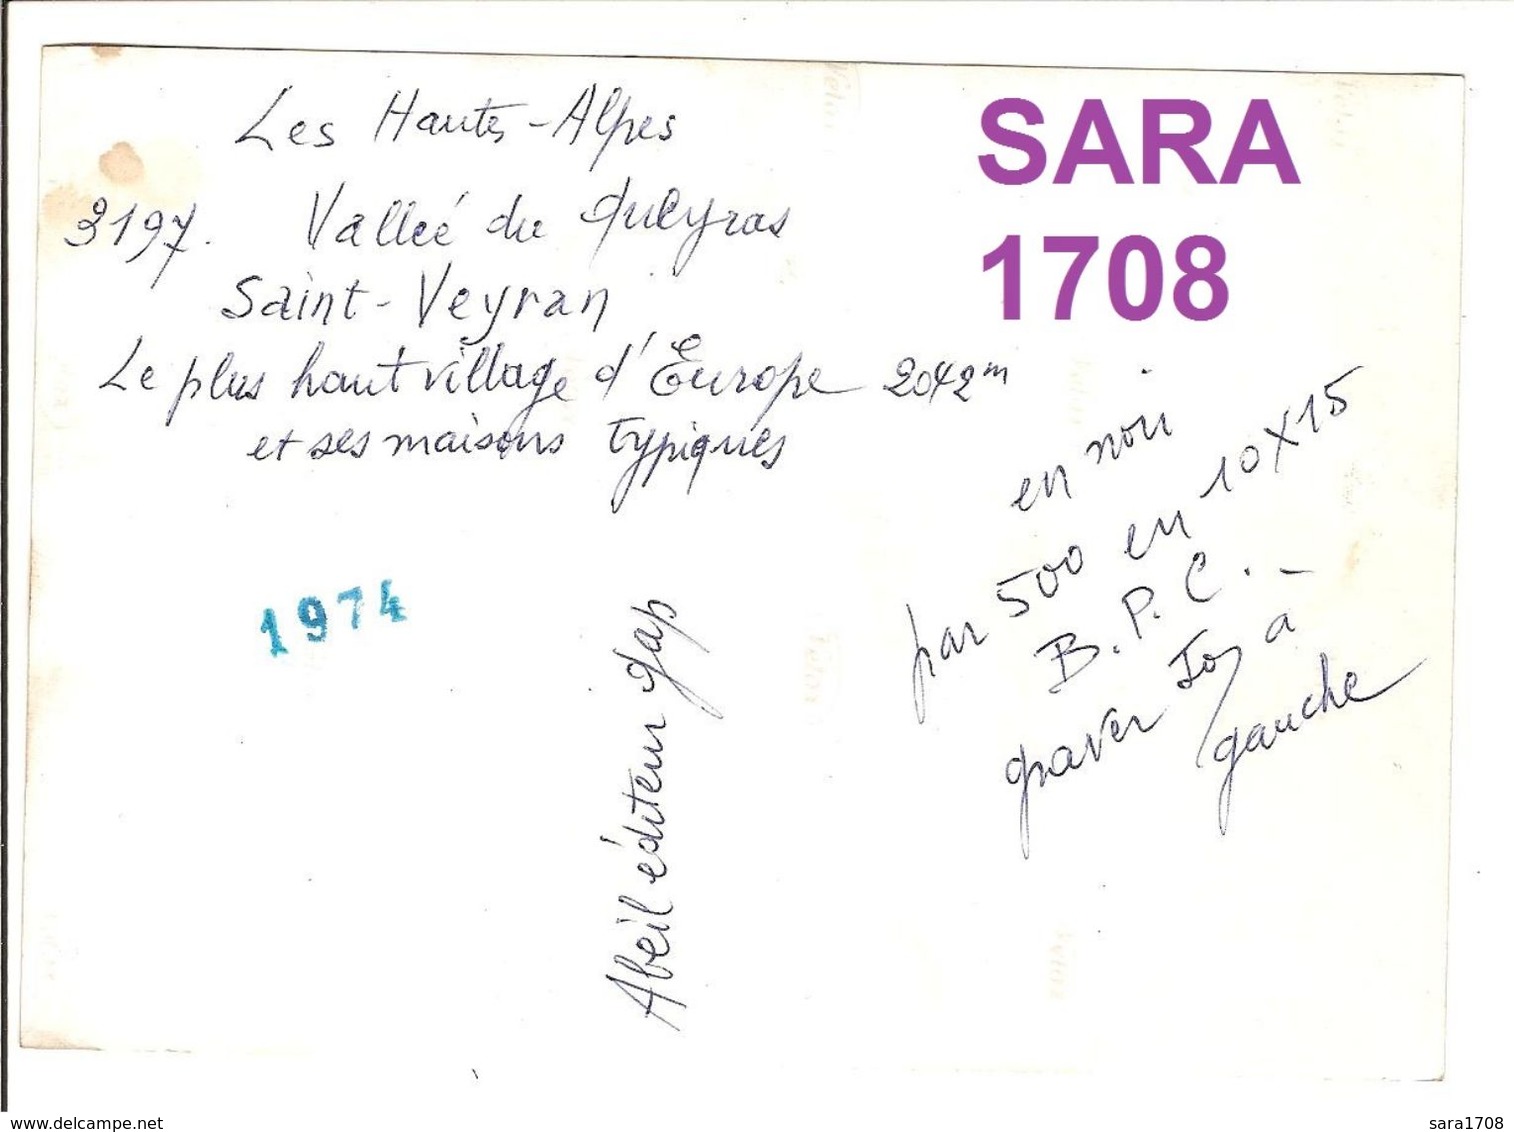 Les Hautes-Alpes
3197. Vallée du Queyras
Saint-Veyran
Le plus haut village d'Europe 2042 m
et ses maisons typiques
SARA
1708
en noir
par 500 en 10X15
B.P.C. -
graver à
gauche
1974
Abeil éditeur gap
www.delcampe.net
sara1708